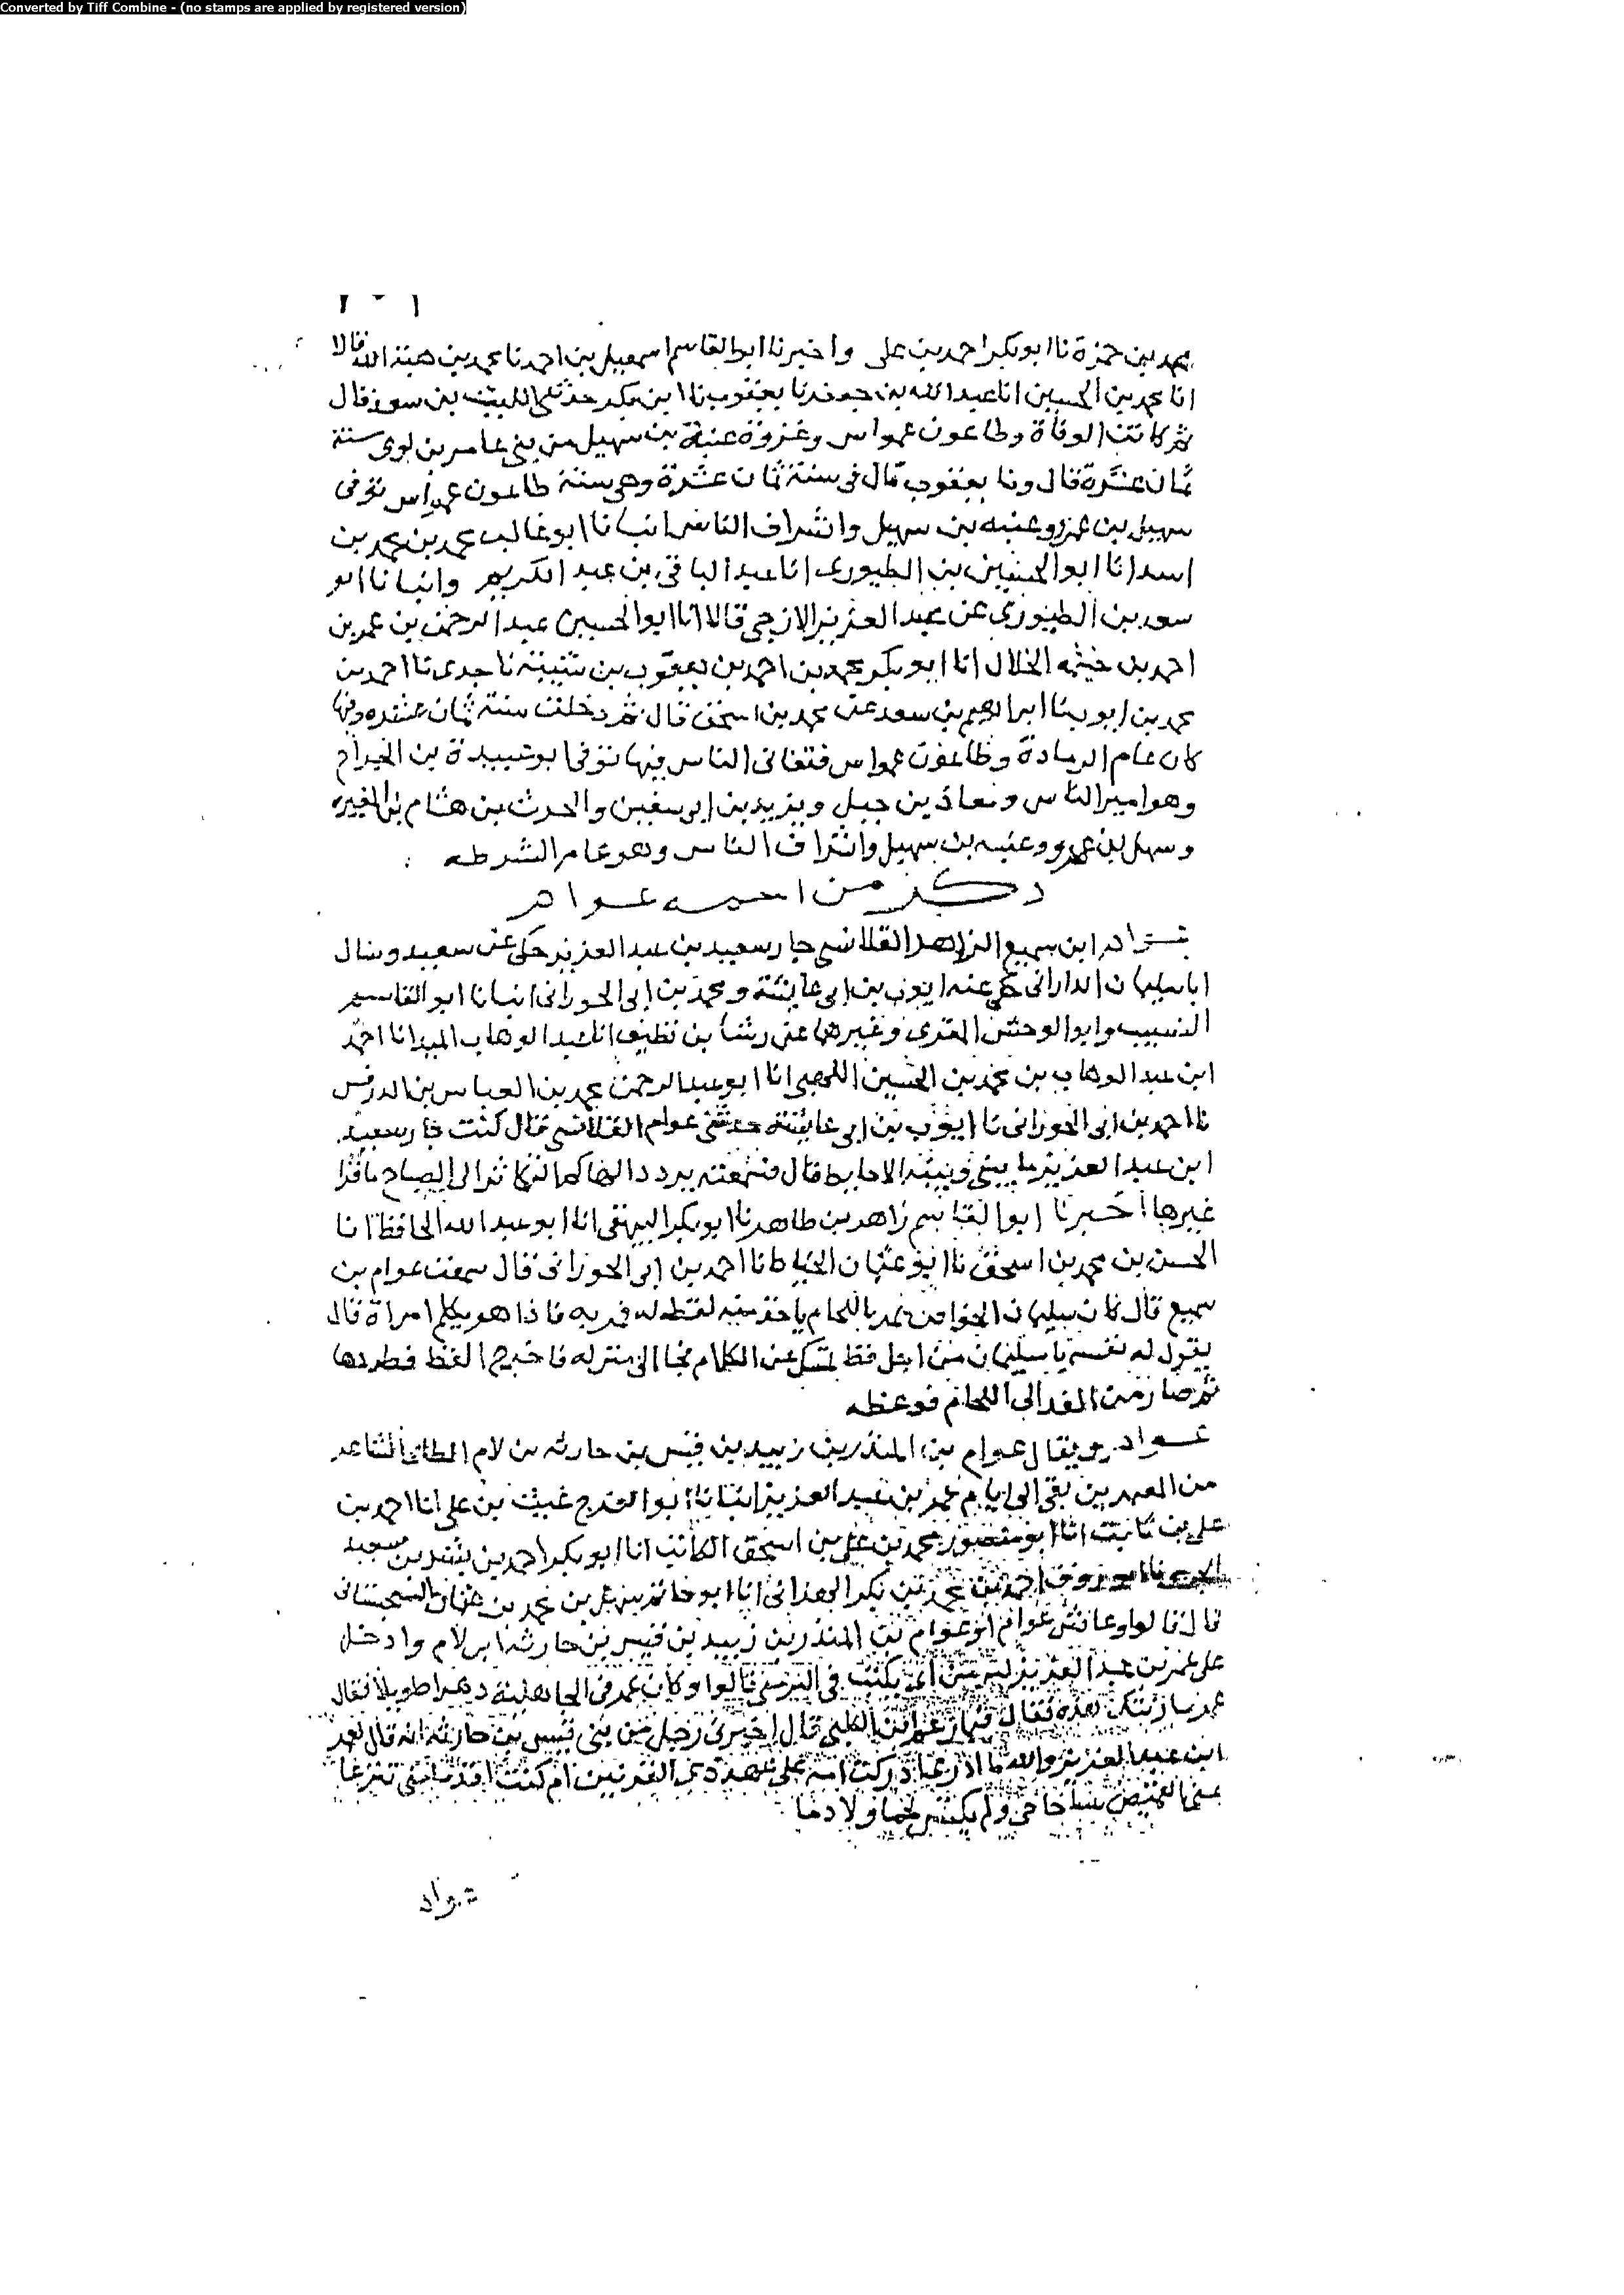 Converted by Tiff Combine - (no stamps are applied by registered version)
محمد بن حمزة نا ابو بكر احمد بن على واخبرنا ابو القاسم اسمعيل بن احمد نا محمد بن هبة الله قالا
انا محمد بن الحسين انا عبد الله بن جعفر نا يعقوب نا ابن بكير حدثنى الليث بن سعد قال
ثم كانت الوفاة وطاعون عمواس وغزوة عتبة بن سهيل من بنى عامر بن لوى سنة
ثمان عشرة قال ونا يعقوب قال فى سنة ثمان عشرة وهى سنة طاعون عمواس توفى
سهيل بن عمرو وعتبه بن سهيل واشراف الناس انبانا ابو غالب محمد بن محمد بن
اسد انا ابو الحسين بن الطيورى انا عبد الباقى بن عبد الكريم وانبانا ابو
سعد بن الطيورى عن عبد العزيز الازجى قالا انا ابو الحسين عبد الرحمن بن عمر بن
احمد بن حمه الخلال انا ابو بكر محمد بن احمد بن يعقوب بن شيبة نا جدى نا احمد بن
محمد بن ايوب نا ابراهيم بن سعد عن محمد بن اسحق قال ثم دخلت سنة ثمان عشره وفيها
كان عام الرمادة وطاعون عمواس فتفانى الناس فيها توفى ابو عبيدة بن الجراح
وهو امير الناس ومعاذ بن جبل ويزيد بن ابى سفين والحرث بن هشام بن المغيره
وسهيل بن عمرو وعتبه بن سهيل واشراف الناس وهو عام
ذكر من اسمه عوام
عوام ابن سميع الزاهد القلانسى جار سعيد بن عبد العزيز حكى عن سعيد وسال
ابا سليمان الدارانى حكى عنه ايوب بن ابى عايشة ومحمد بن ابى الحوارى انبانا ابو القاسم
النسيب وابو الوحش المقرى وغيرهما عن رشا بن نظيف انا عبد الوهاب الميدانى احمد
ابن عبد الوهاب بن محمد بن الحسين اللهبى انا ابو عبد الرحمن محمد بن العباس بن الدرفس
نا احمد بن ابى الحوارى نا ايوب بن ابى عايشة حدثنى عوام القلانسى قال كنت جار سعيد
ابن عبد العزيز ما بينى وبينه الا حايط قال فسمعته يردد الهاكم التكاثر الى الصباح ما قرا
غيرها اخبرنا ابو القاسم زاهر بن طاهر نا ابو بكر البيهقى انا ابو عبد الله الحافظ انا
الحسن بن محمد بن اسحق نا ابو عثمان الخياط نا احمد بن ابى الحوارى قال سمعت عوام بن
سميع قال كان سليمان الخواص يمر باللحام ياخذ منه لقطه له فمر به فاذا هو يكلم امراة قال
يقول له نفسه يا سليمان من اجل قط تمسك عن الكلام فجا الى منزله فاخرج القط فطردها
ثم صار من الغد الى اللحام فوعظه
عوام ويقال عوام بن المنذر بن زبيد بن قيس بن حارثه بن لام الطائى الشاعر
من المعمرين بقى الى ايام عمر بن عبد العزيز انبانا ابو الفرج غيث بن على انا احمد بن
على بن ثابت انا ابو منصور محمد بن على بن اسحق الكاتب انا ابو بكر احمد بن بشر بن سعيد
نا ابو روق احمد بن محمد بن بكر الهزانى انا ابو حاتم سهل بن محمد بن عثمان السجستانى
قال قالوا وعاش عوام ابو عوام بن المنذر بن زبيد بن قيس بن حارثة بن لام وادخل
على عمر بن عبد العزيز ليزمن اى يكتب فى الزمنى قالوا وكان عمر فى الجاهلية دهرا طويلا فقال
عمر ما زمانتك هذه فقال فيما زعم ابن الكلبى قال اخبرنى رجل من بنى قيس بن حارثة انه قال لعمر
ابن عبد العزيز والله ما ادرى اادركت امة على عهد ذى القرنين ام كنت اقدما متى تنزعا
عنى القميص تبينا جاجى ولم يكسين لحما ولا دما
عوام